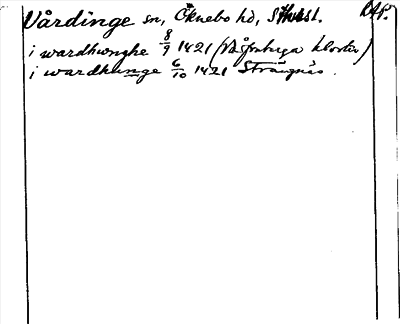 Vårdinge sn, Öknebo hd, Sthlmsl. RAP.
i wardhunghe 8/9 1421 (Vårfruberga kloster)
i wardhunge 6/10 1421 Strängnäs.